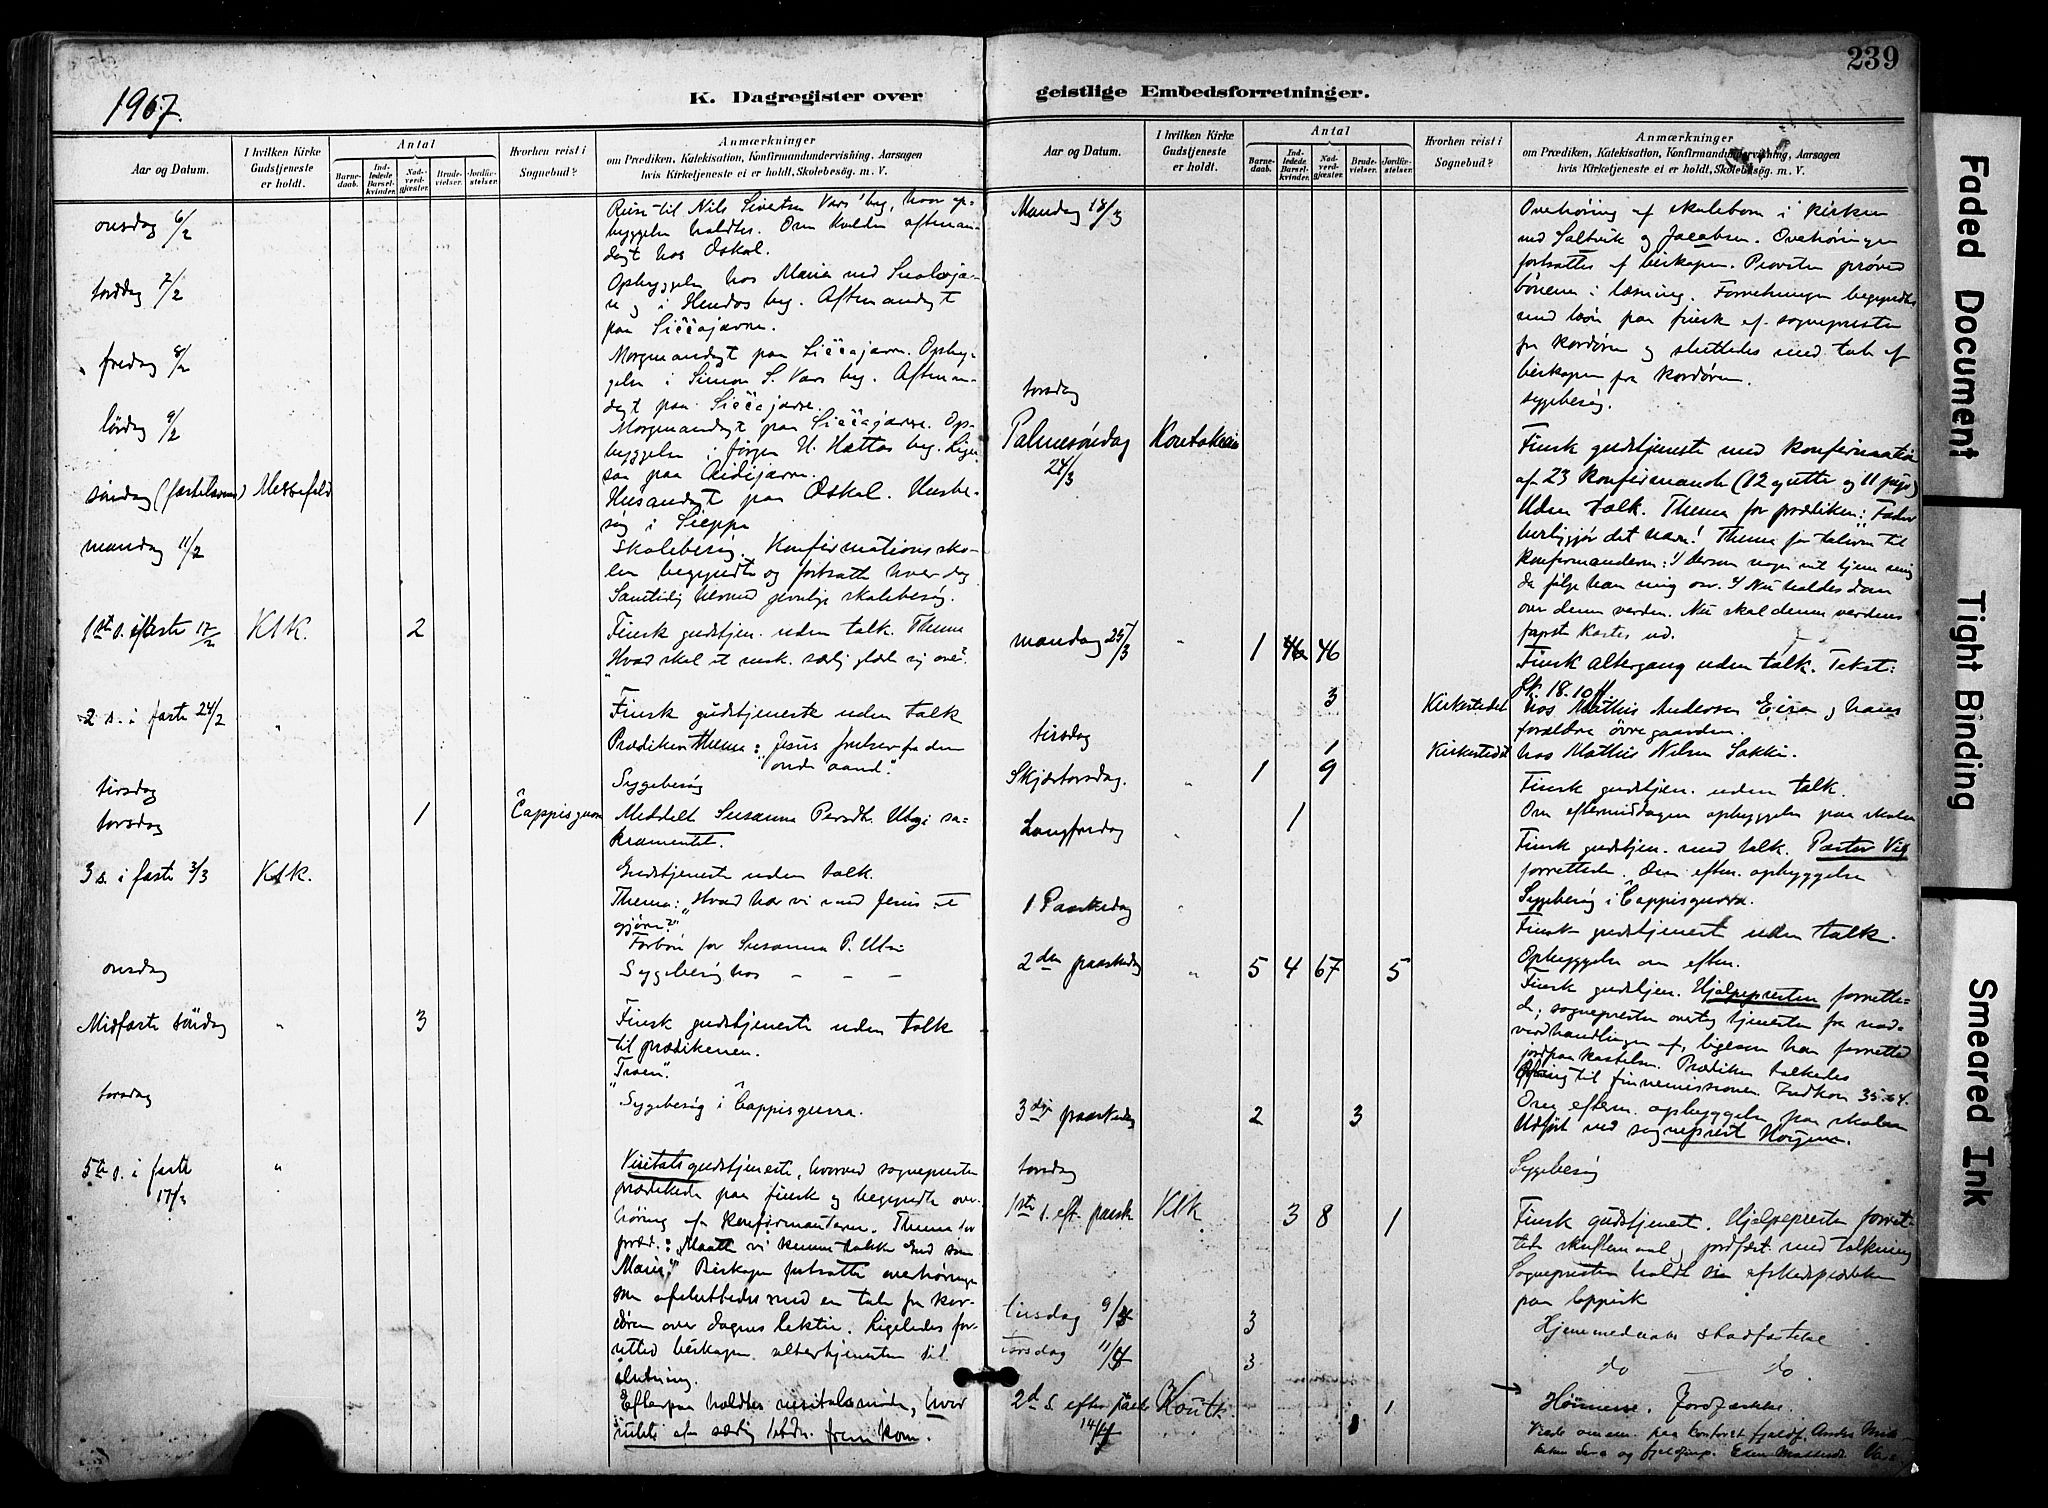 239
1907.
K. Dagregister over
geistlige Embedsforretninger.
Aar og Datum.
I hvilken Kirke Gudstjeneste er holdt.
Antal
Barne-daab.
Ind-ledede Barsel-kvinder.
Nad-verd-gjæster.
Brude-vielser.
Jordfæ-stelser.
Hvorhen reist i Sognebud?
Anmærkninger
om Prædiken, Katekisation, Konfirmandundervisning, Aarsagen
hvis Kirketjeneste ei er holdt, Skolebesøg m. V.
onsdag 6/2
Reise til Nils Sivertsen Vars' byg, hvor op-
byggelse holdtes. Om kvelden aftenan-
dagt hos Oskal.
torsdag 7/2
Opbyggelse hos Maria
og i Hendas byg. Aftenandagt
paa Siččajavre.
fredag 8/2
Morgenandagt paa Siččajavre. Opbyg-
gelse i Simon S. Vars byg. Aftenan-
dagt paa Siččajavre.
lørdag 9/2
Morgenandagt paa Siččajavre. Op-
byggelse i Jørgen H. Hættas byg. Lige-
saa paa
søndag (fastelavns) Messefald
Husandagt paa Oskal. Husbe-
søg i Sieppe
mandag 11/2
Skolebesøg. Konfirmationssko-
len begyndte og fortsatte hver dag
Samtidig hermed jevnlige skolebesøg.
1ste s. i faste 17/2 Ktk. 2
Finsk gudstjen. uden talk. Thema
"Hvad skal et msk. særlig glæde sig over".
2 s. i faste 24/2 "
Finsk gudstjeneste uden talk
Prædiken Thema: "Jesus frelser fra den
onde aand."
tirsdag
Sygebesøg
torsdag 1 Čappisgurra
Meddelt Susanna Persdtr. Utsi sa-
kramentet.
3 s. i faste 3/3 Ktk.
Gudstjeneste uden talk.
Thema: "Hvad har vi med Jesus at
gjøre?"
Forbøn for Susanna P. Utsi
onsdag
Sygebesøg hos - - -
Midfaste søndag " 3
Finsk gudstjeneste uden talk
til prædikenen.
"Troen".
torsdag
Sygebesøg i Čappisgurra.
5te s. i faste 17/3 "
Visitatsgudstjeneste, hvorved sognepresten
prædikede paa finsk og begyndte over-
høring af konfirmanterne. Thema for
præd.: "Maatte vi kunne takke Gud som
Maria." Biskopen fortsatte overhøringen
som afsluttedes med en tale fra kor-
døren over dagens lektie. Ligeledes for-
retted biskopen altertjenesten til
slutning.
Efterpaa holdtes visitatsmøde, hvor
intet af særlig betydn. frem kom.
Aar og Datum.
I hvilken Kirke Gudstjeneste er holdt.
Antal
Barne-daab.
Ind-ledede Barsel-kvinder.
Nad-verd-gjæster.
Brude-vielser.
Jordfæ-stelser.
Hvorhen reist i Sognebud?
Anmærkninger
om Prædiken, Katekisation, Konfirmandundervisning, Aarsagen
hvis Kirketjeneste ei er holdt, Skolebesøg m. V.
Mandag 18/3
Overhøring af skolebørn i kirken
ved Saltvik og Jacobsen. Overhøringen
fortsattes af biskopen. Provsten prøved
børnene i læsning. Forretningen begyndtes
med bøn paa finsk af sognepresten
fra kordøren og sluttedes med tale af
biskopen fra kordøren.
torsdag
sygebesøg.
Palmesøndag 24/3 Koutokeino
Finsk gudstjeneste med konfirmation
af 23 konfirmander (12 gutter og 11 piger)
Uden talk. Thema for prædiken: "Fader
herliggjør dit navn! Thema for talerne til
konfirmanderne: 1/ Dersom nogen vil tjene mig
da følge han mig osv. 2/ Nu holdes dom
over denne verden. Nu skal denne verdens
fyrste kastes ud.
mandag 25/3 " 1 46 46
Finsk altergang uden talk. Tekst:
Lk. 18. 10 ff
3 Kirkestedet
hos Mathis Andersen Eira og hans
forældre øvregaarden.
tirsdag 1 Kirkestedet
hos Mathis Nilsen Sokki.
Skjærtorsdag. " 1 9
Finsk gudstjen. uden talk.
Om eftermiddagen opbyggelse paa skolen
Langfredag " 1
Finsk gudstjen. med talk. Pastor Vig
forrettede. Om efterm. opbyggelse
Sygebesøg i Čappisgurra.
1 Paaskedag "
Finsk gudstjeneste uden talk.
Opbyggelse om efterm.
2den paaskedag " 5 4 67 5
Finsk gudstjen. Hjælpepresten forrette-
de; sognepresten overtog tjenesten fra nad-
verdhandlingen af, ligesom han forretted
jordpaakastelsen. Prædiken talkedes
Ofring til finnemissionen. Indkom 35.64.
Om efterm. opbyggelse paa skolen
3die paaskedag 2 3
Udført ved sogneprest Norgren.
torsdag
Sygebesøg
1ste s. eft. paaske Ktk 3 8 1
Finsk gudstjenest. Hjælpepresten forret-
tede skriftemaal og jordfæst. med talkning
Sognepresten holdt sin afskedsprædiken
paa lappisk
tirsdag 9/4 3
Hjemmedaabs stadfæstelse
Torsdag 11/4 3
do — do.
2d S. efter Paaske 14/4 Kout. 1 1
Høimesse. Jordfæstelse.